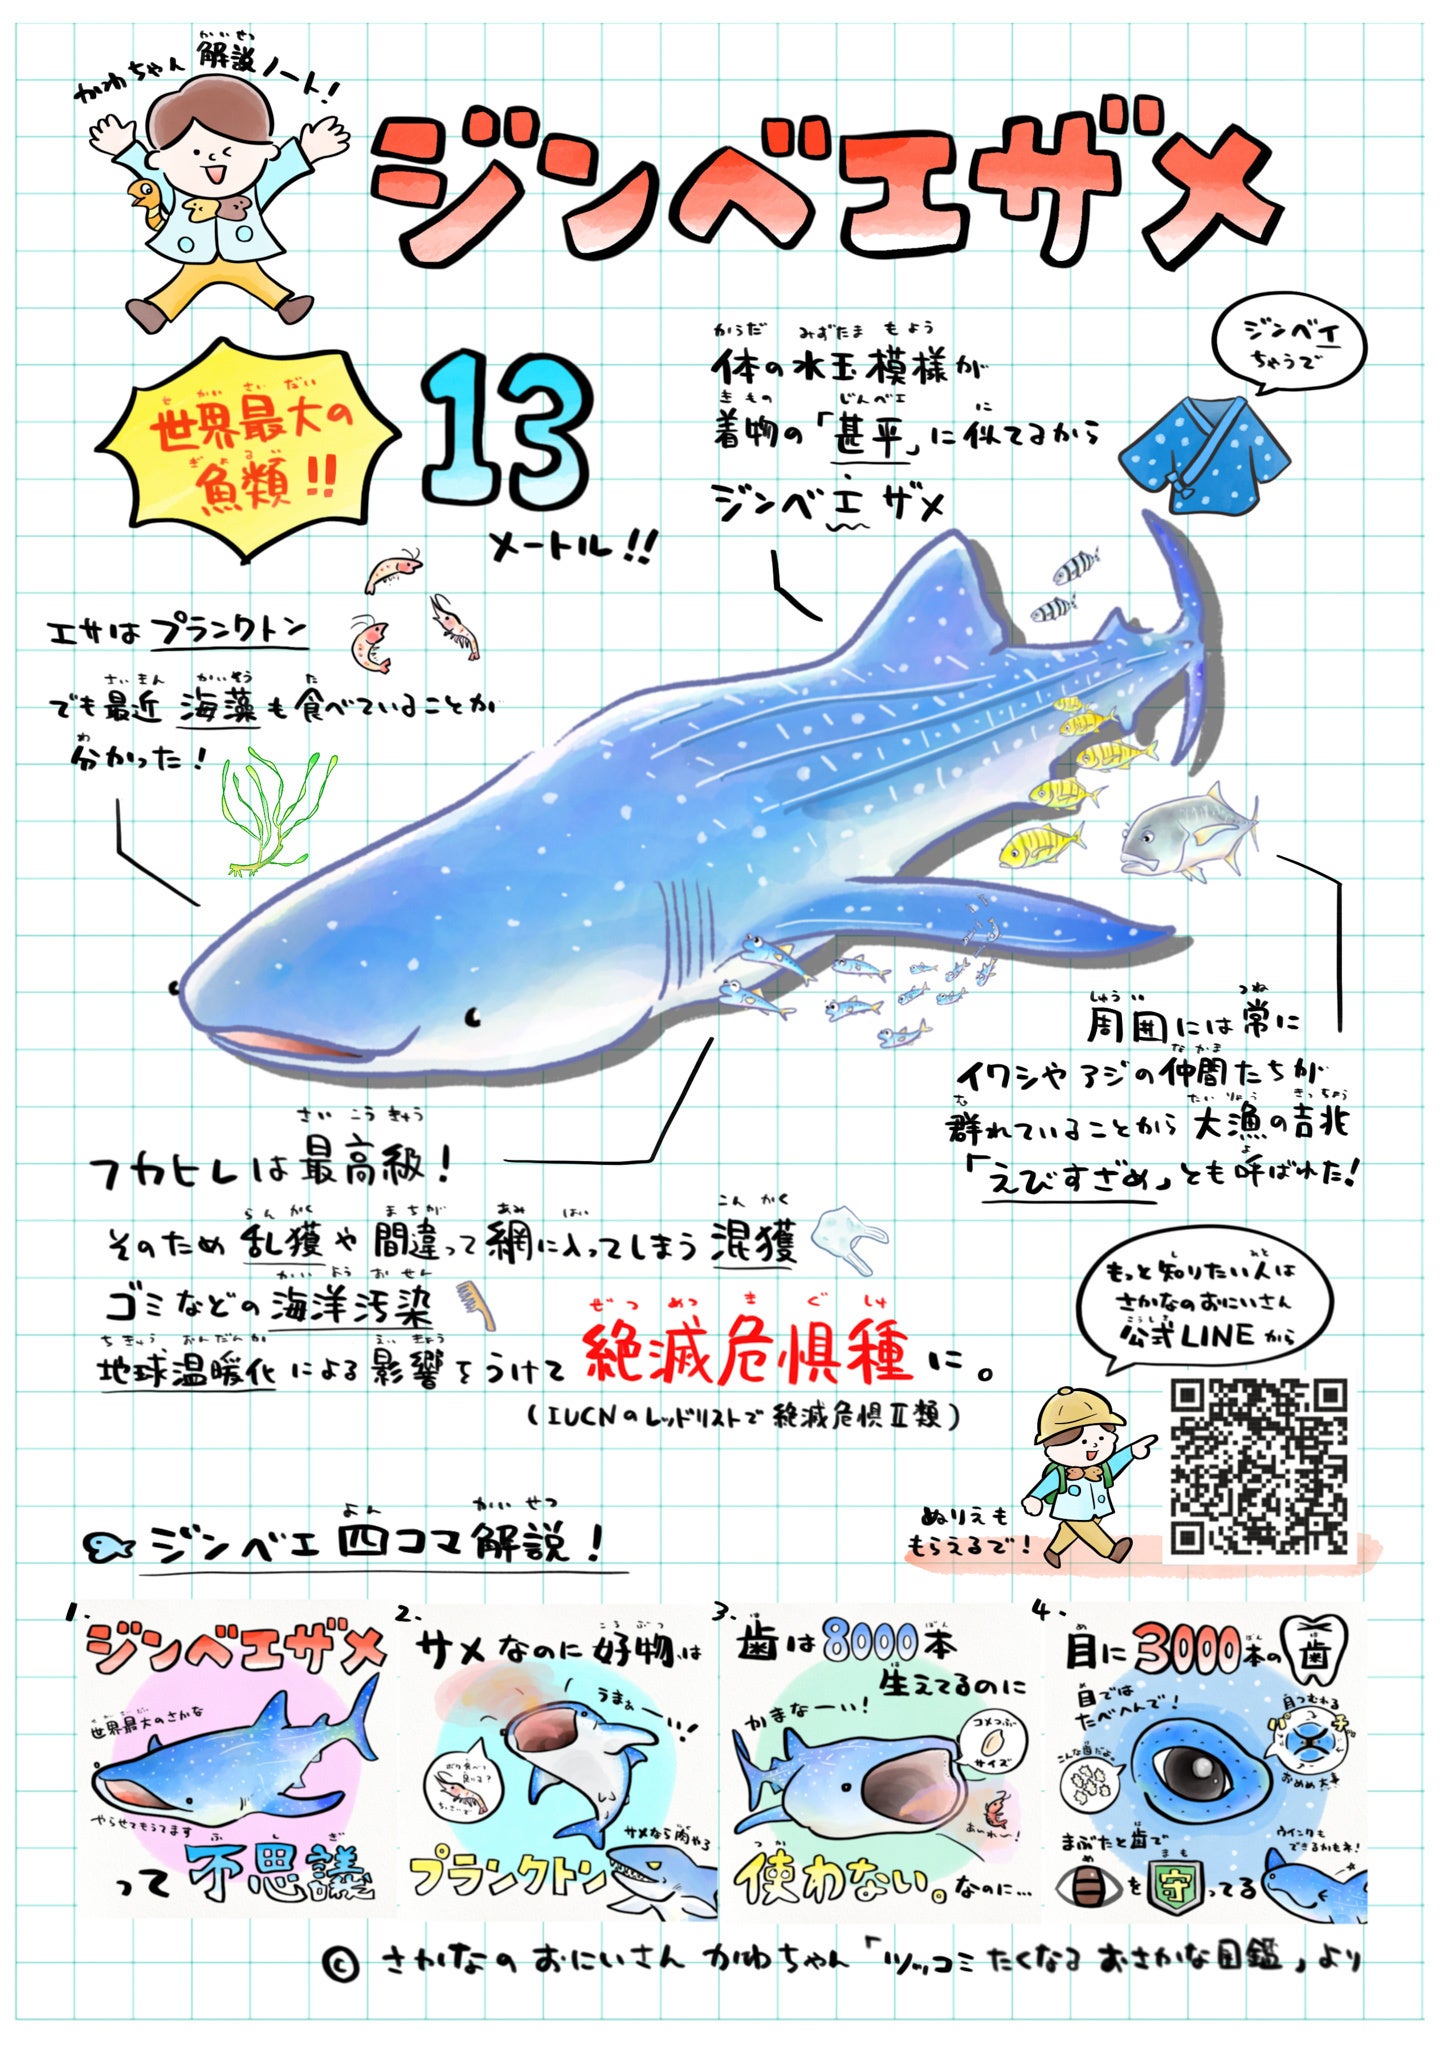 かわちゃん解説ノート!
ジンベエザメ
世界最大の
魚類!!
13
メートル!!
体の水玉模様が
着物の「甚平」に似てるから
ジンベエザメ
ジンベイ
ちゃうで
エサはプランクトン
でも最近 海藻も食べていることが
分かった!
周囲には常に
イワシやアジの仲間たちが
群れていることから 大漁の吉兆
「えびすざめ」とも呼ばれた!
フカヒレは最高級!
そのため乱獲や間違って網に入ってしまう混獲
ゴミなどの海洋汚染
地球温暖化による影響をうけて絶滅危惧種に。
(IUCNのレッドリストで絶滅危惧Ⅱ類)
もっと知りたい人は
さかなのおにいさん
公式LINEから
ぬりえも
もらえるで!
ジンベエ四コマ解説!
1.
ジンベエザメ
世界最大のさかな
やらせてもうてます
って不思議
2.
サメなのに好物は
うまぁーい!
プランクトン
サメなら肉やろ
3.
歯は8000本
生えてるのに
かまなーい!
コメつぶ
サイズ
あ〜れ〜!
使わない。なのに…
4.
目に3000本の歯
目では
たべへんで!
こんな歯だよ。
目つむれる
おめめ大事
まぶたと歯で
目を守ってる
ウインクも
できるかもネ!
© さかなのおにいさん かわちゃん「ツッコミたくなるおさかな図鑑」より